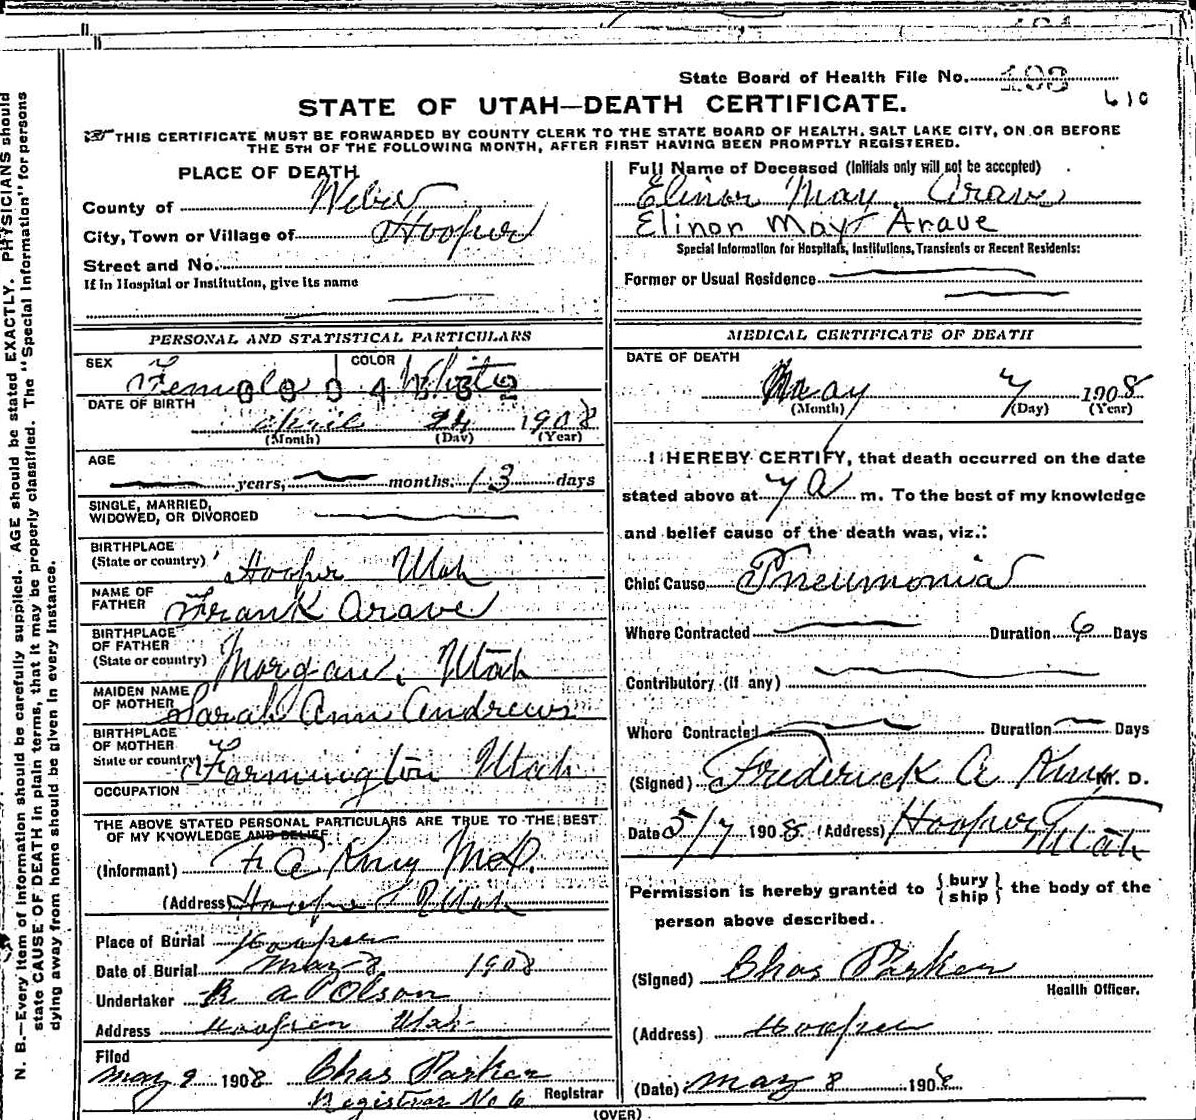 State Board of Health File No. 193
610
STATE OF UTAH—DEATH CERTIFICATE.
THIS CERTIFICATE MUST BE FORWARDED BY COUNTY CLERK TO THE STATE BOARD OF HEALTH, SALT LAKE CITY, ON OR BEFORE
THE 5TH OF THE FOLLOWING MONTH, AFTER FIRST HAVING BEEN PROMPTLY REGISTERED.
PLACE OF DEATH
County of Weber
City, Town or Village of Hooper
Street and No.
If in Hospital or Institution, give its name
Full Name of Deceased (Initials only will not be accepted)
Elinor May Arave
Elinor May Arave
Special Information for Hospitals, Institutions, Transients or Recent Residents:
Former or Usual Residence
PERSONAL AND STATISTICAL PARTICULARS
SEX Female COLOR White
DATE OF BIRTH
April 24 1908
(Month) (Day) (Year)
AGE
years, months. 13 days
SINGLE, MARRIED,
WIDOWED, OR DIVORCED
BIRTHPLACE
(State or country) Hooper Utah
NAME OF
FATHER Frank Arave
BIRTHPLACE
OF FATHER
(State or country) Morgan, Utah
MAIDEN NAME
OF MOTHER Sarah Ann Andrews
BIRTHPLACE
OF MOTHER
State or country) Farmington Utah
OCCUPATION
THE ABOVE STATED PERSONAL PARTICULARS ARE TRUE TO THE BEST
OF MY KNOWLEDGE AND BELIEF
(Informant) F. A. M.D.
(Address) Hooper Utah
Place of Burial Hooper
Date of Burial May 8 1908
Undertaker R A Olson
Address Hooper Utah
Filed
May 9 1908 Chas Parker
Registrar No 6 Registrar
MEDICAL CERTIFICATE OF DEATH
DATE OF DEATH
May 7 1908
(Month) (Day) (Year)
I HEREBY CERTIFY, that death occurred on the date
stated above at 7 A m. To the best of my knowledge
and belief cause of the death was, viz.:
Chief Cause Pneumonia
Where Contracted Duration 6 Days
Contributory (if any)
Where Contracted Duration Days
(Signed) Frederick A M. D.
Date 5/7 1908 (Address) Hooper
Utah
Permission is hereby granted to { bury ship } the body of the
person above described.
(Signed) Chas Parker
Health Officer.
(Address) Hooper
(Date) May 8 1908
(OVER)
N. B.—Every item of information should be carefully supplied. AGE should be stated EXACTLY. PHYSICIANS should
state CAUSE OF DEATH in plain terms, that it may be properly classified. The "Special Information" for persons
dying away from home should be given in every instance.